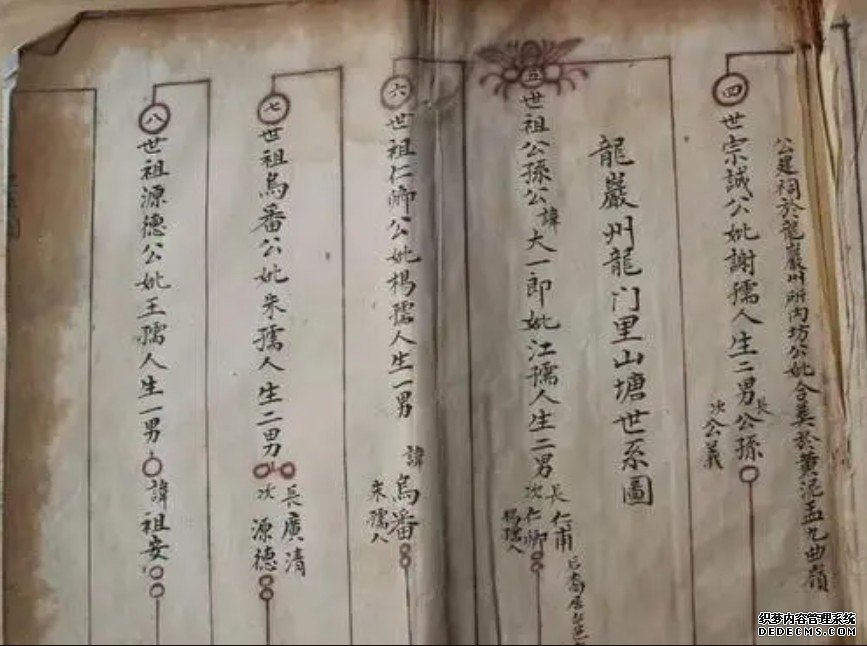 公建祠於龍巖州所內坊公妣合葬於黃泥盂九曲嶺
四世宗誠公妣謝孺人生二男
長公孫
次公義
龍巖州龍门里山塘世系圖
五世祖公孫公諱大一郎妣江孺人生二男
長仁甫
次仁卿
楊孺人
六世祖仁卿公妣楊孺人生一男
諱烏番
朱孺人
七世祖烏番公妣朱孺人生二男
長廣清
次源德
八世祖源德公妣王孺人生一男
諱祖安
织梦内容管理系统
DEDECMS.COM